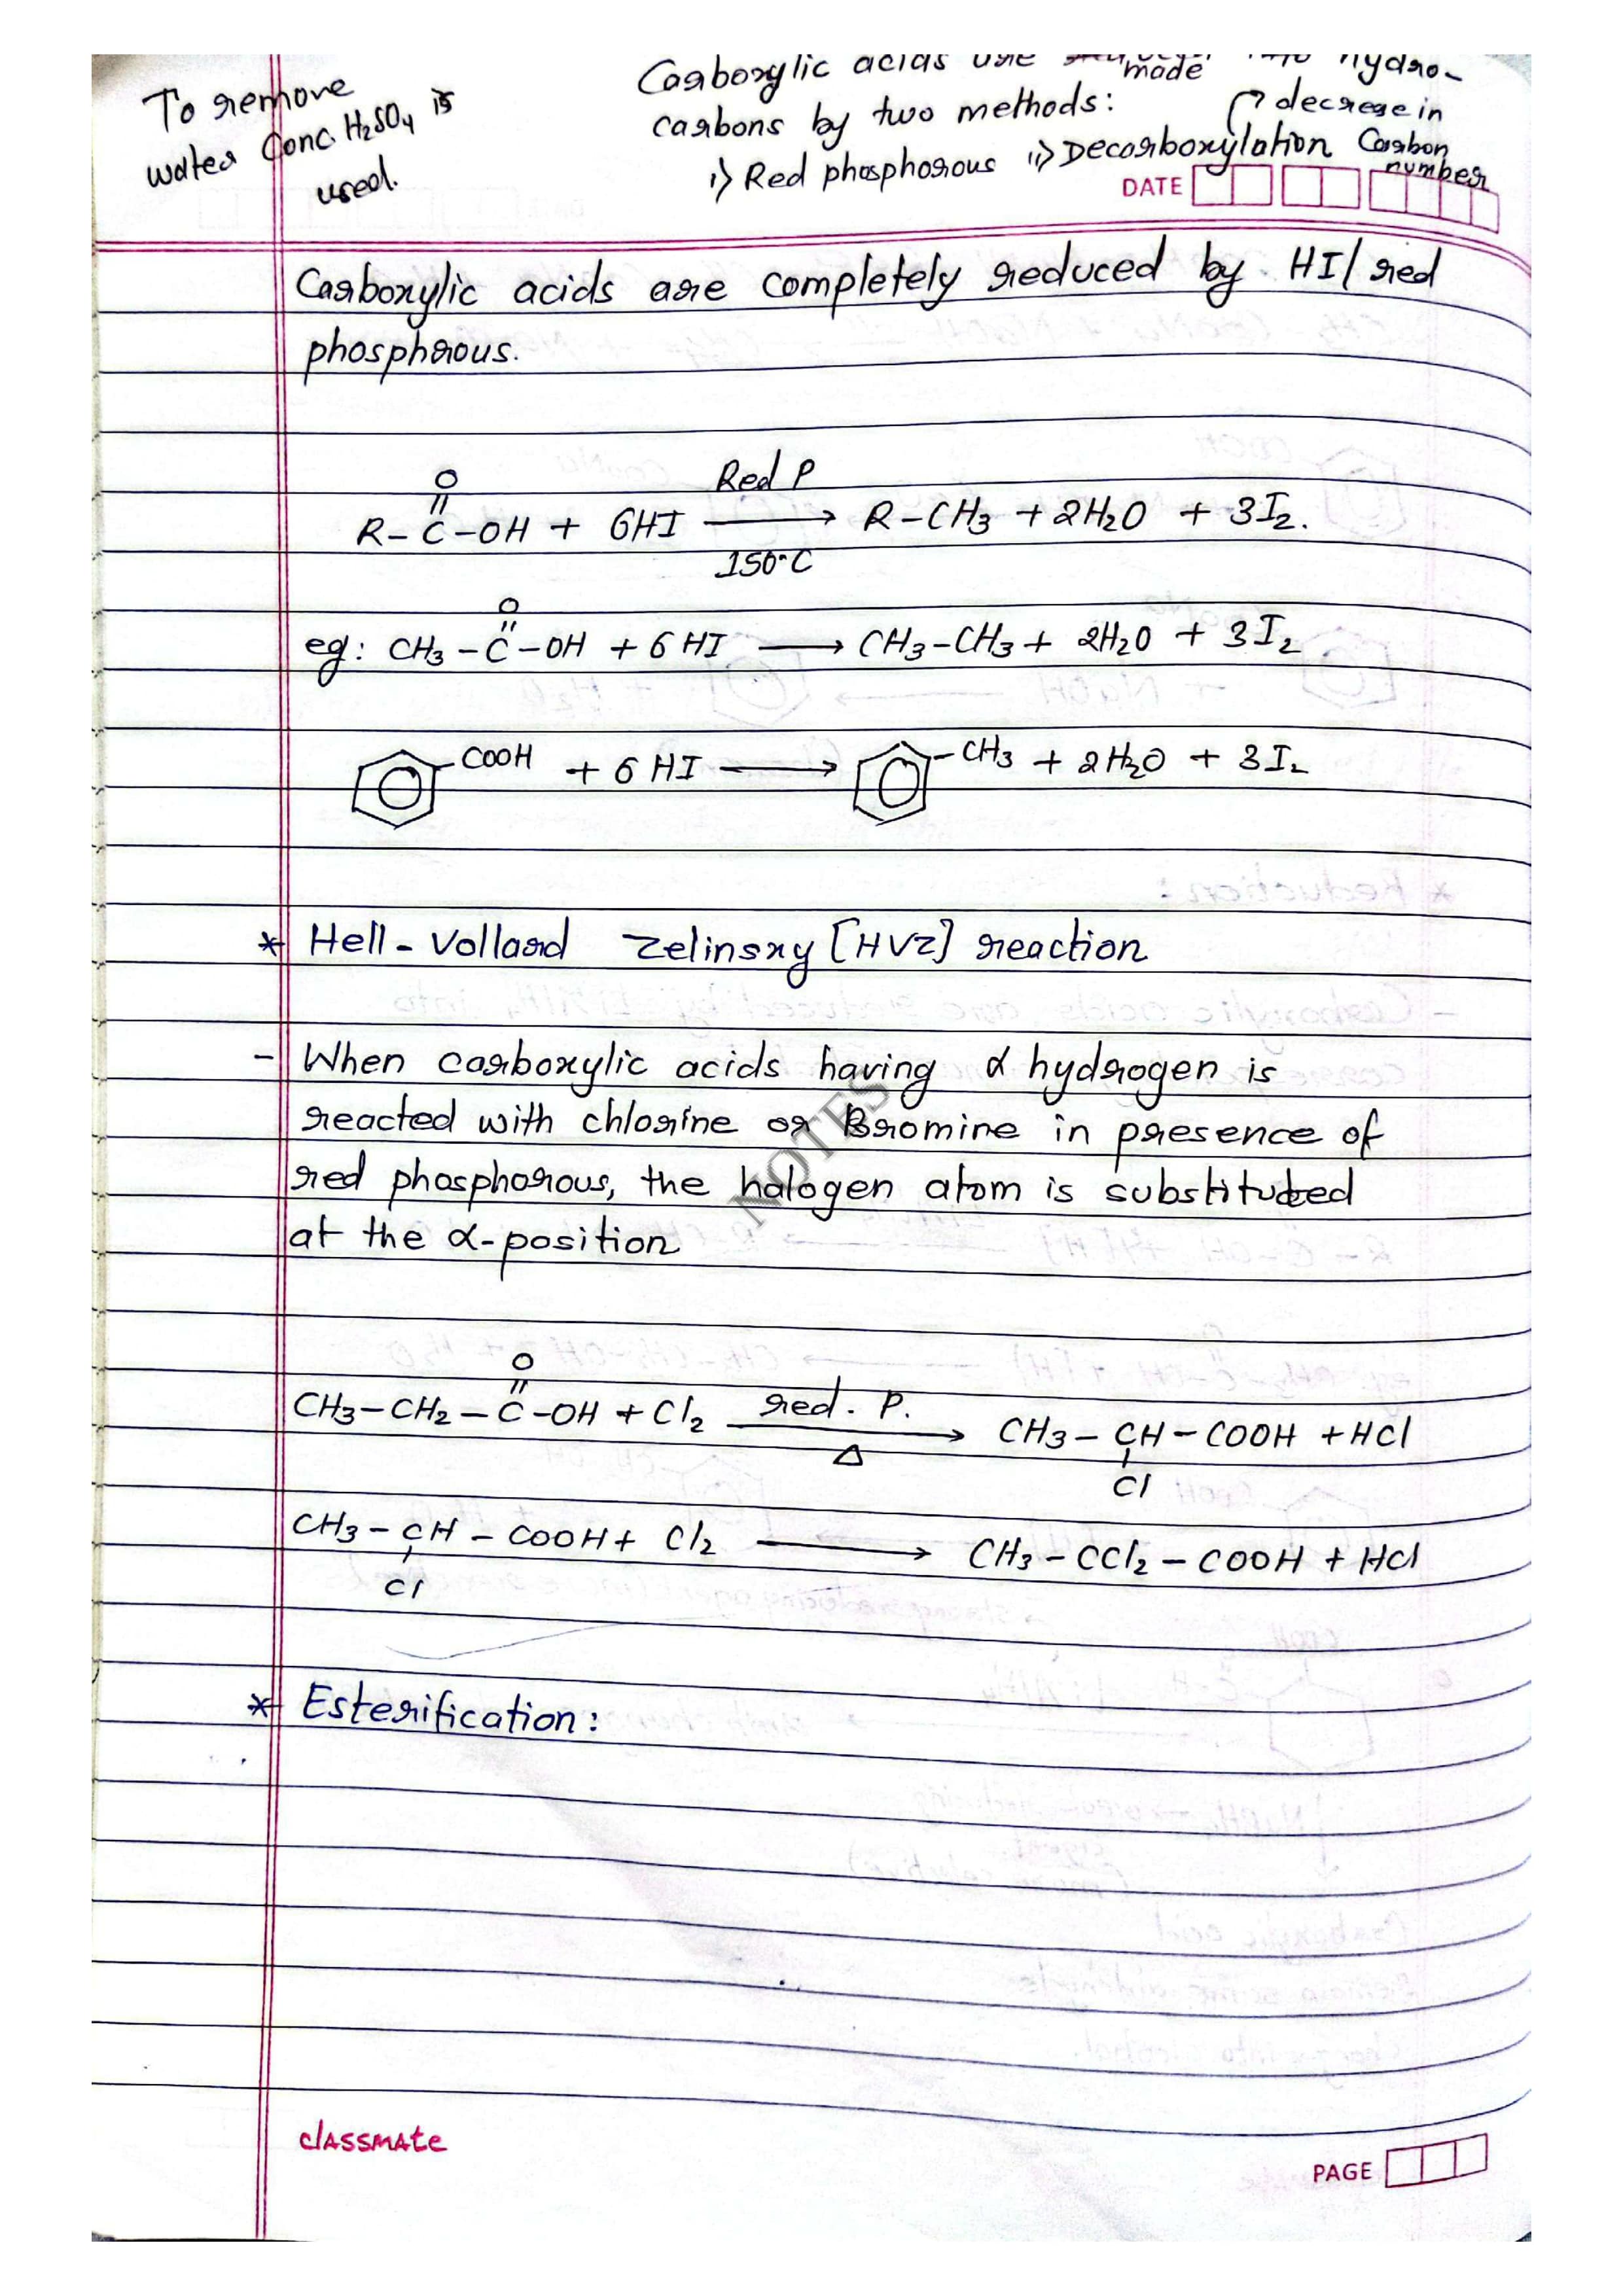 To remove
water Conc. H2SO4 is
used.
Carboxylic acids are made into hydro-
carbons by two methods:
→ decrease in
i) Red phosphorous ii) Decarboxylation Carbon
number
DATE
Carboxylic acids are completely reduced by HI/red
phosphorous.
O
||
R-C-OH + 6HI Red P → 150°C R-CH3 + 2H2O + 3I2.
O
||
eg: CH3-C-OH + 6HI → CH3-CH3 + 2H2O + 3I2
COOH + 6HI → CH3 + 2H2O + 3I2
* Hell-Vollard Zelinsxy [HVZ] reaction
- When carboxylic acids having α hydrogen is
reacted with chlorine or Bromine in presence of
red phosphorous, the halogen atom is substituted
at the α-position
NOTES
O
||
CH3-CH2-C-OH + Cl2 red. P. → Δ CH3-CH-COOH + HCl
Cl
CH3-CH-COOH + Cl2 → CH3-CCl2-COOH + HCl
Cl
* Esterification:
classmate
PAGE